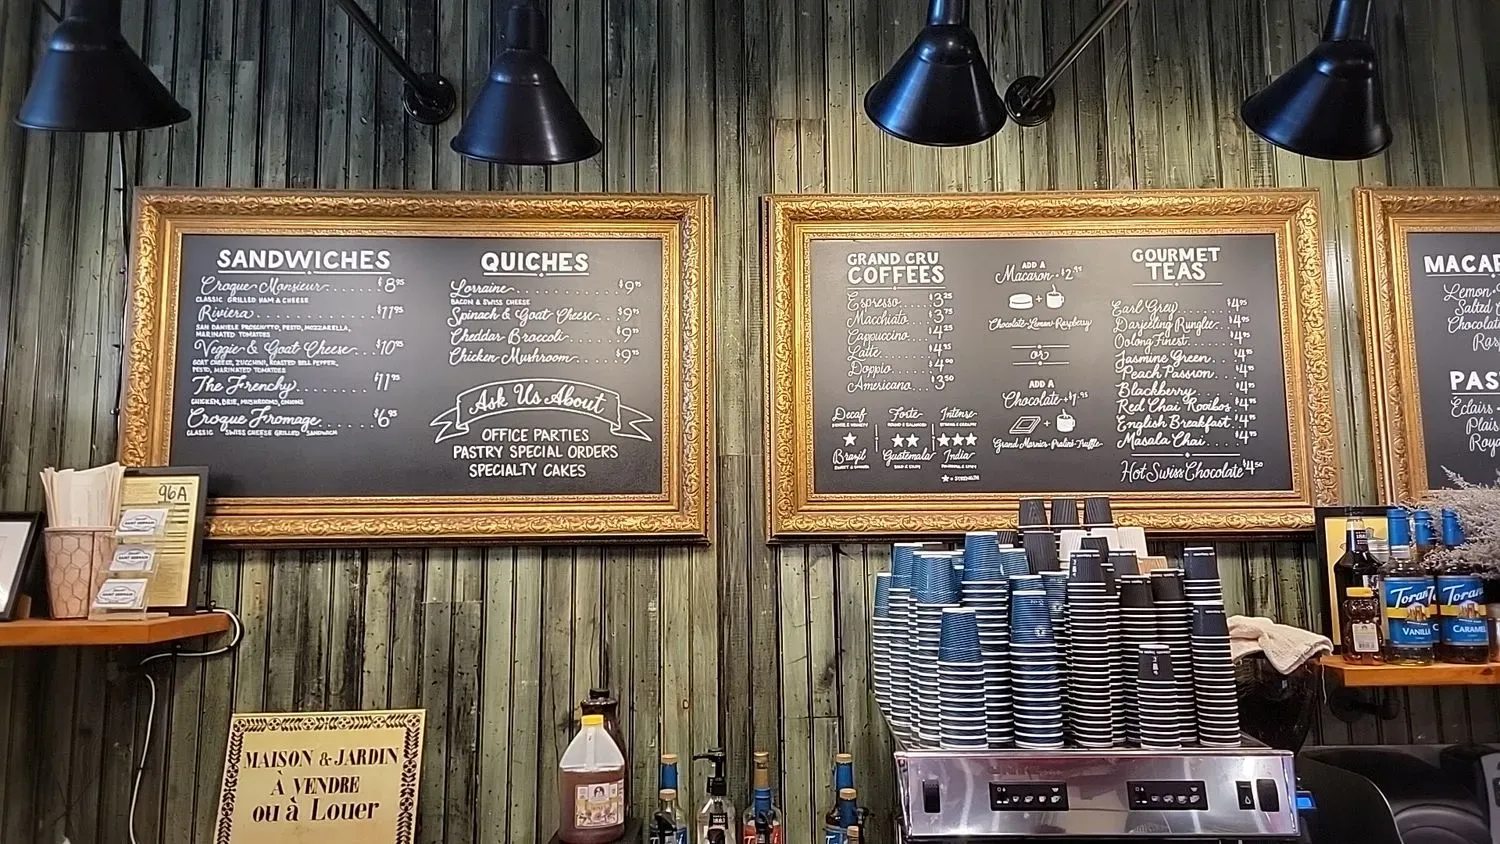 SANDWICHES
Croque Monsieur $8.95
CLASSIC GRILLED HAM & CHEESE
Riviera $11.95
SAN DANIELE PROSCIUTTO, PESTO, MOZZARELLA,
MARINATED TOMATOES
Veggie & Goat Cheese $10.95
GOAT CHEESE, ZUCCHINI, ROASTED BELL PEPPER,
PESTO, MARINATED TOMATOES
The Frenchy $11.95
CHICKEN, BRIE, MUSHROOMS, ONIONS
Croque Fromage $6.95
CLASSIC SWISS CHEESE GRILLED SANDWICH
QUICHES
Lorraine $9.95
BACON & SWISS CHEESE
Spinach & Goat Cheese $9.95
Cheddar Broccoli $9.95
Chicken Mushroom $9.95
Ask Us About
OFFICE PARTIES
PASTRY SPECIAL ORDERS
SPECIALTY CAKES
GRAND CRU
COFFEES
Espresso $3.25
Macchiato $3.75
Cappuccino $4.25
Latte $4.95
Doppio $4.00
Americano $3.50
Decaf
Brazil
Forte
Guatemala
Intense
India
= STRENGTH
ADD A
Macaron
+
Chocolate-Lemon-Raspberry
or
ADD A
Chocolate
+
Grand Marnier-Praliné-Truffle
GOURMET
TEAS
Earl Grey $4.95
Darjeeling Runglee $4.95
Oolong Finest $4.95
Jasmine Green $4.95
Peach Passion $4.95
Blackberry $4.95
Red Chai Rooibos $4.95
English Breakfast $4.95
Masala Chai $4.95
Hot Swiss Chocolate $4.50
MACAR
Lemon
Salted
Chocolat
Ras
PAS
Eclairs
Plais
Roya
96A
MAISON & JARDIN
À VENDRE
ou à Louer
Torani
VANILL
Torani
CARAMEL